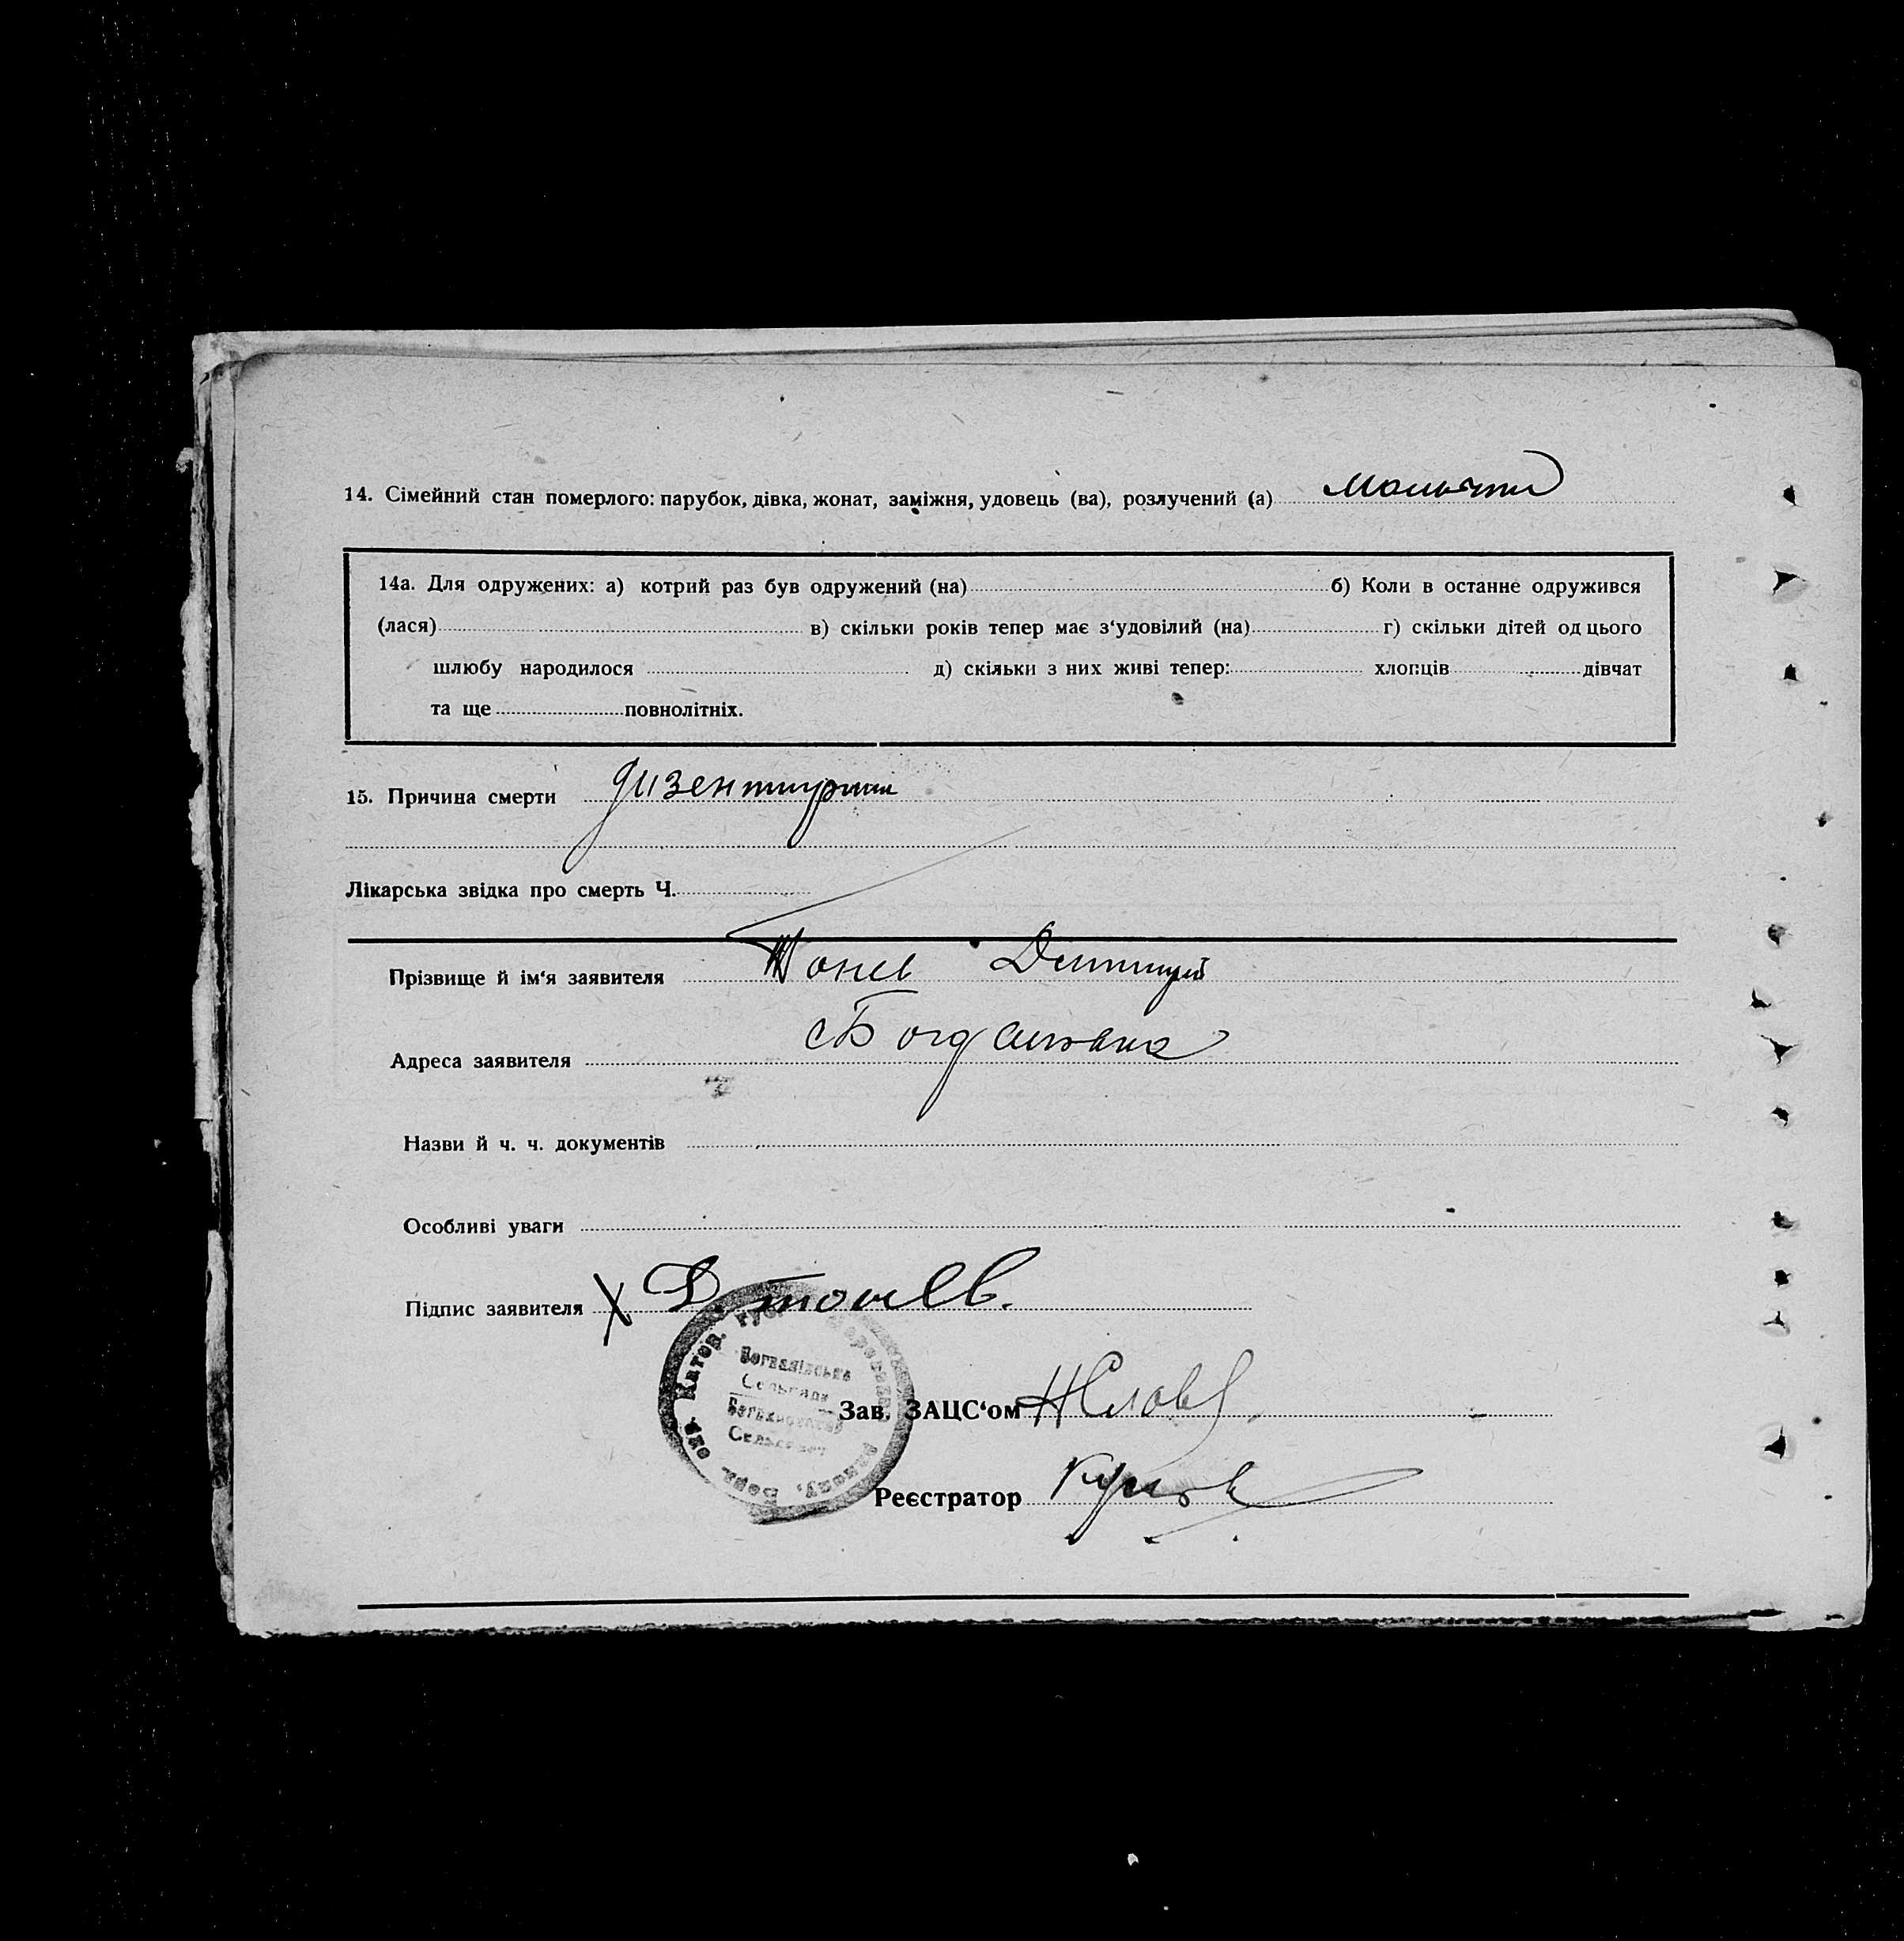 14. Сімейний стан померлого: парубок, дівка, жонат, заміжня, удовець (ва), розлучений (а)
14а. Для одружених: а) котрий раз був одружений (на) б) Коли в останне одружився
(лася) в) скільки років тепер має з‘удовілий (на) г) скільки дітей од цього
шлюбу народилося д) скільки з них живі тепер: хлопців дівчат
та ще повнолітніх.
15. Причина смерти
Лікарська звідка про смерть Ч.
Прізвище й ім‘я заявителя Тонев Дмитрий
Адреса заявителя
Назви й ч. ч. документів
Особливі уваги
Підпис заявителя X Д. Тонев.
Зав. ЗАЦС‘ом
Реєстратор